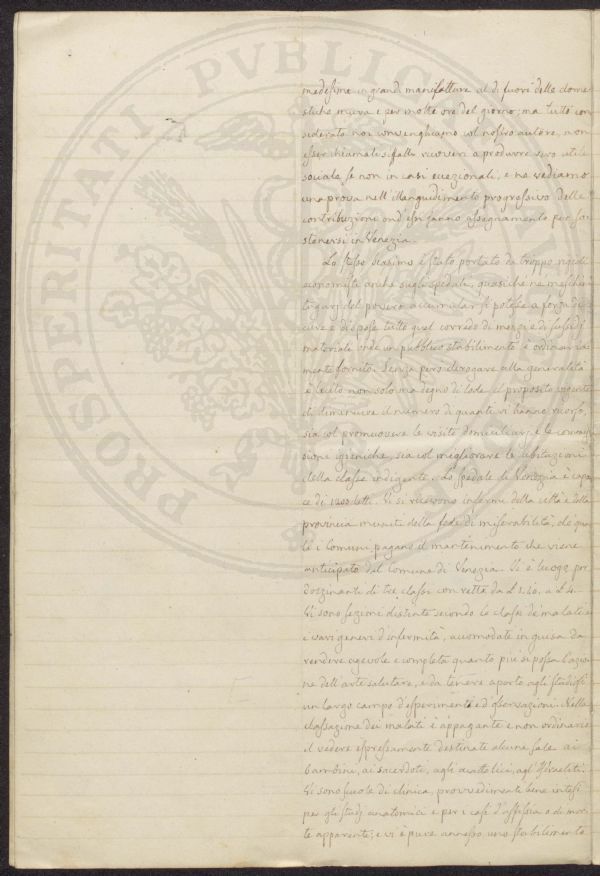 PROSPERITATI PVBLICO
medesimo in grandi manifatture al di fuori delle dome
stiche mura e per molte ore del giorno; ma tutto con
siderato noi convenghiamo col nostro autore, non
esser chiamati siffatti ricoveri a produrre vero utile
sociale se non in casi eccezionali, e ne vediamo
una prova nell'illanguidimento progressivo delle
contribuzioni ond'essi fanno assegnamento per so
stenersi in Venezia.
Lo stesso biasimo è stato portato da troppo rigidi
economisti anche sugli spedali, quasichè ne meschini
tugurj del povero accumular si potesse a forza di
cure e di spese tutto quel corredo di mezzi e di sussidj
materiali onde un pubblico stabilimento è ordinaria
mente fornito. Senza però derogare alla generalità
è lecito non solo ma degno di lode il proposito vigente
di diminuire il numero di quanti vi hanno ricorso,
sia col promuovere le visite domiciliari e le commis
sioni igieniche, sia col migliorare le abitazioni
della classe indigente. Lo spedale di Venezia è capa
ce di 1200 letti. Vi si ricevono infermi della città e della
provincia muniti della fede di miserabilità, de qua
li i Comuni pagano il mantenimento che viene
anticipato dal Comune di Venezia. Vi è luogo per
dozzinanti di tre classi con retta da £ 1.40. a £ 4.
Vi sono sezioni distinte secondo le classi de' malati e
i vari generi d'infermità, accomodate in guisa da
rendere agevole e completa quanto più si possa l'azio
ne dell'arte salutare, e da tenere aperto agli studiosi
un largo campo d'esperimenti e d'osservazioni. Nella
classazione dei malati è appagante e non ordinario
il vedere espressamente destinate alcune sale ai
bambini, ai sacerdoti, agli acattolici, agl'Israeliti.
Vi sono scuole di clinica, provvedimenti bene intesi
per gli studj anatomici e per i casi d'asfissia o di mor
te apparente; e vi è pure annesso uno stabilimento